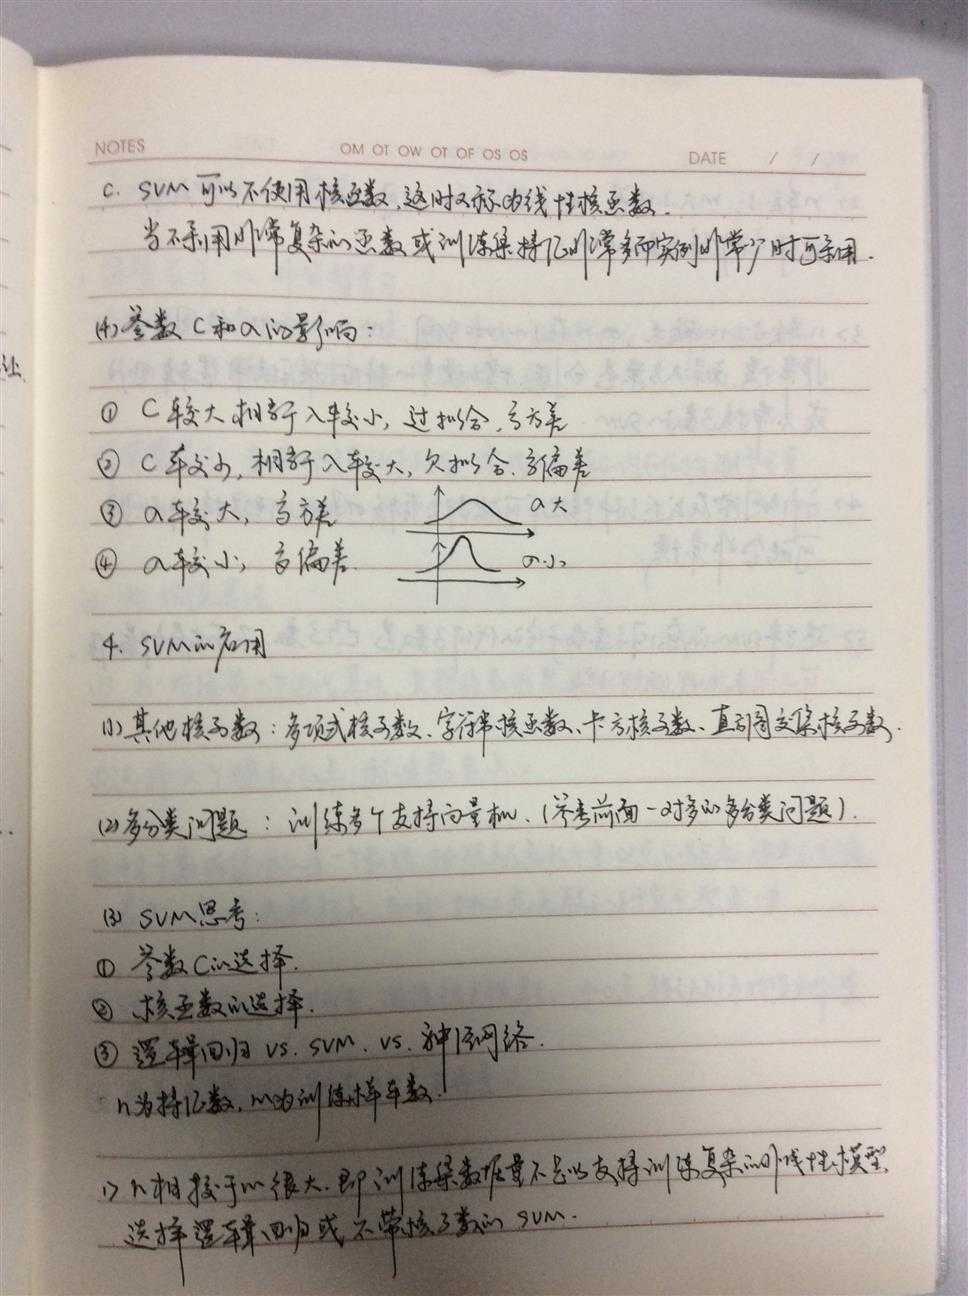 NOTES OM OT OW OT OF OS OS DATE / /
C. SVM 可以不使用核函数,这时又称为线性核函数.
当不采用非常复杂的函数或训练集特征非常多而实例非常少时可采用.
(4) 参数 C 和 σ 的影响:
① C 较大, 相当于 λ 较小, 过拟合, 高方差
② C 较小, 相当于 λ 较大, 欠拟合, 高偏差
③ σ 较大, 高方差
σ大
④ σ 较小, 高偏差.
σ小
4. SVM的应用
(1) 其他核函数: 多项式核函数、字符串核函数、卡方核函数、直方图交集核函数.
(2) 多分类问题: 训练多个支持向量机. (参考前面一对多的多分类问题).
(3) SVM思考:
① 参数C的选择.
② 核函数的选择.
③ 逻辑回归 vs. SVM. vs. 神经网络.
n为特征数, m为训练样本数.
1> n相较于m很大, 即训练集数据量不足以支持训练复杂的非线性模型
选择逻辑回归或不带核函数的 SVM.